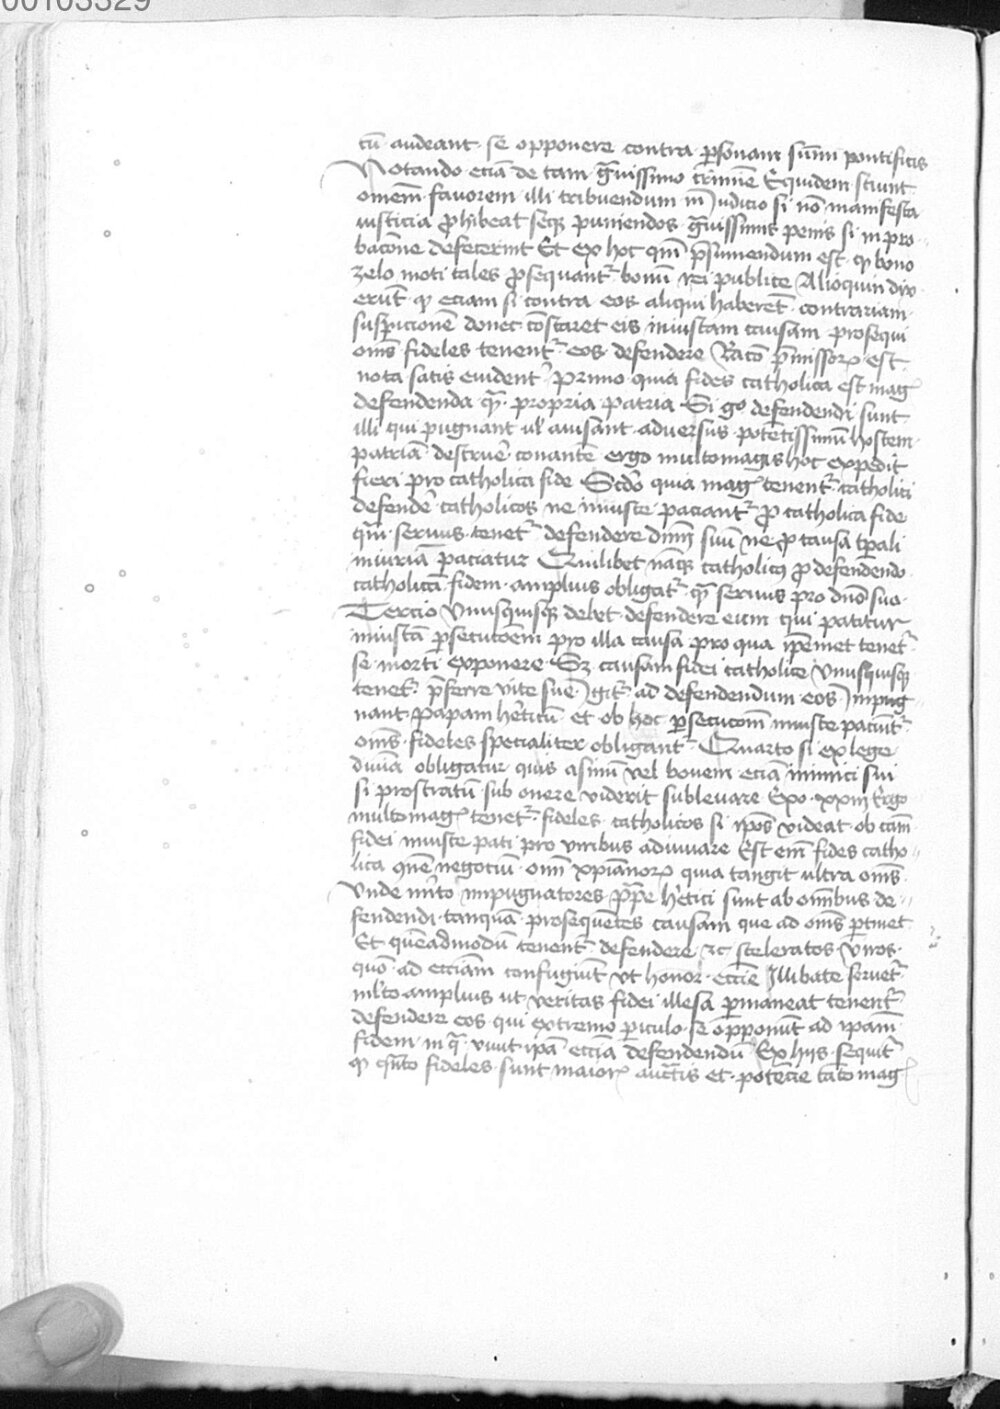 00103329
cū audeant se opponere contra ꝑsonam sūmi pontificis
Notando eciā de tam gͣuissimo crimine Equidem sciunt
omnem̄ favorem illi tribuendum in Judicio si nō manifesta
iusticia ꝓhibeat seqꝫ puniendos gͣuissimis penis si in pro
bacōne defecerint Et ex hoc qm̄ p̄sumendum est ꝙ bono
zelo moti tales ꝓsequant᷑ bonū rei publice Alioquin dix
erūt ꝙ eciam si contra eos aliqui haberēt contrariam
suspicionē donec cōstaret eis iniustam causam prosequi
oms̄ fideles tenent᷑ eos defendere Racō p̄missoꝝ est
nota satis euident᷑ Primo quia fides catholica est mag᷑
defendenda qͣ propria patria Si gͦ defendendi sunt
illi qui pugnant ul̄ adversus potētissimū hostem
patriā destruē conantē ergo multomagis hoc expedit
fieri pro catholica fide Scd̄o quia mag᷑ tenent᷑ catholici
defendē catholicos ne iniuste paciant᷑ ꝓ catholica fide
qm̄ seruus tenet᷑ defendere dn̄m suū ne ꝓ causa tꝑali
iniuriā paciatur Quilibet nāqꝫ catholicꝰ ꝓ defendendo
catholicā fidem amplius obligat᷑ qͣ seruus pro dn̄o suo
Tercio Unusquisqꝫ debet defendere eum qui patitur
iniustā ꝑsecucōem pro illa causa pro qua ip̄emet tenet᷑
se morti exponere Sꝫ causam fidei catholice Unusquisqꝫ
tenet᷑ p̄ferre vite sue Igit᷑ ad defendendum eos impug
nant papam hꝰeticū et ob hoc ꝑsecucom̄ iniuste paciūt᷑
oms̄ fideles specialiter obligant᷑ Quarto si ex lege
diuīa obligatur quis asinū vel bouem eciā inimici sui
si prostratū sub onere viderit subleuare Exo xxiij Ergo
multomag᷑ tenet᷑ fideles catholicos si ip̄os videat ob cām
fidei iniuste pati pro viribus adiuuare Est em̄ fides catho
lica negociū om̄i xp̄ianoꝝ quia tangit ultra oms̄
Unde mͥto impugnatores pp̄e hꝰetici sunt ab omībus de
fendendi tanquā prosequētes causam que ad oms̄ ꝑtinet
Et quēadmodū tenent᷑ defendere ⁊c sceleratos viros
quō ad ecciām confugiūt vt honor ecc̄ie Illibate seruet᷑
ml̄to amplius ut veritas fidei illesa ꝑmaneat tenent᷑
defendere eos qui extremo ꝑiculo se opponūt ad ip̄am
fidem in qͣ viuūt ip̄ā ecc̄iā defendendū Ex hijs sequit᷑
ꝙ qn̄to fideles sunt maioꝝ auctͥtis et potēcie tāto mag᷑